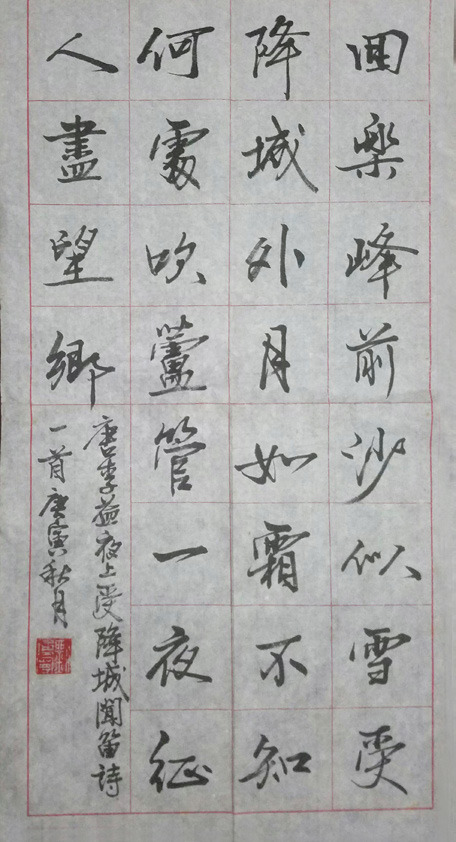 回樂峰前沙似雪受
降城外月如霜不知
何處吹蘆管一夜征
人盡望鄉
唐李益夜上受降城聞笛詩
一首庚寅秋月